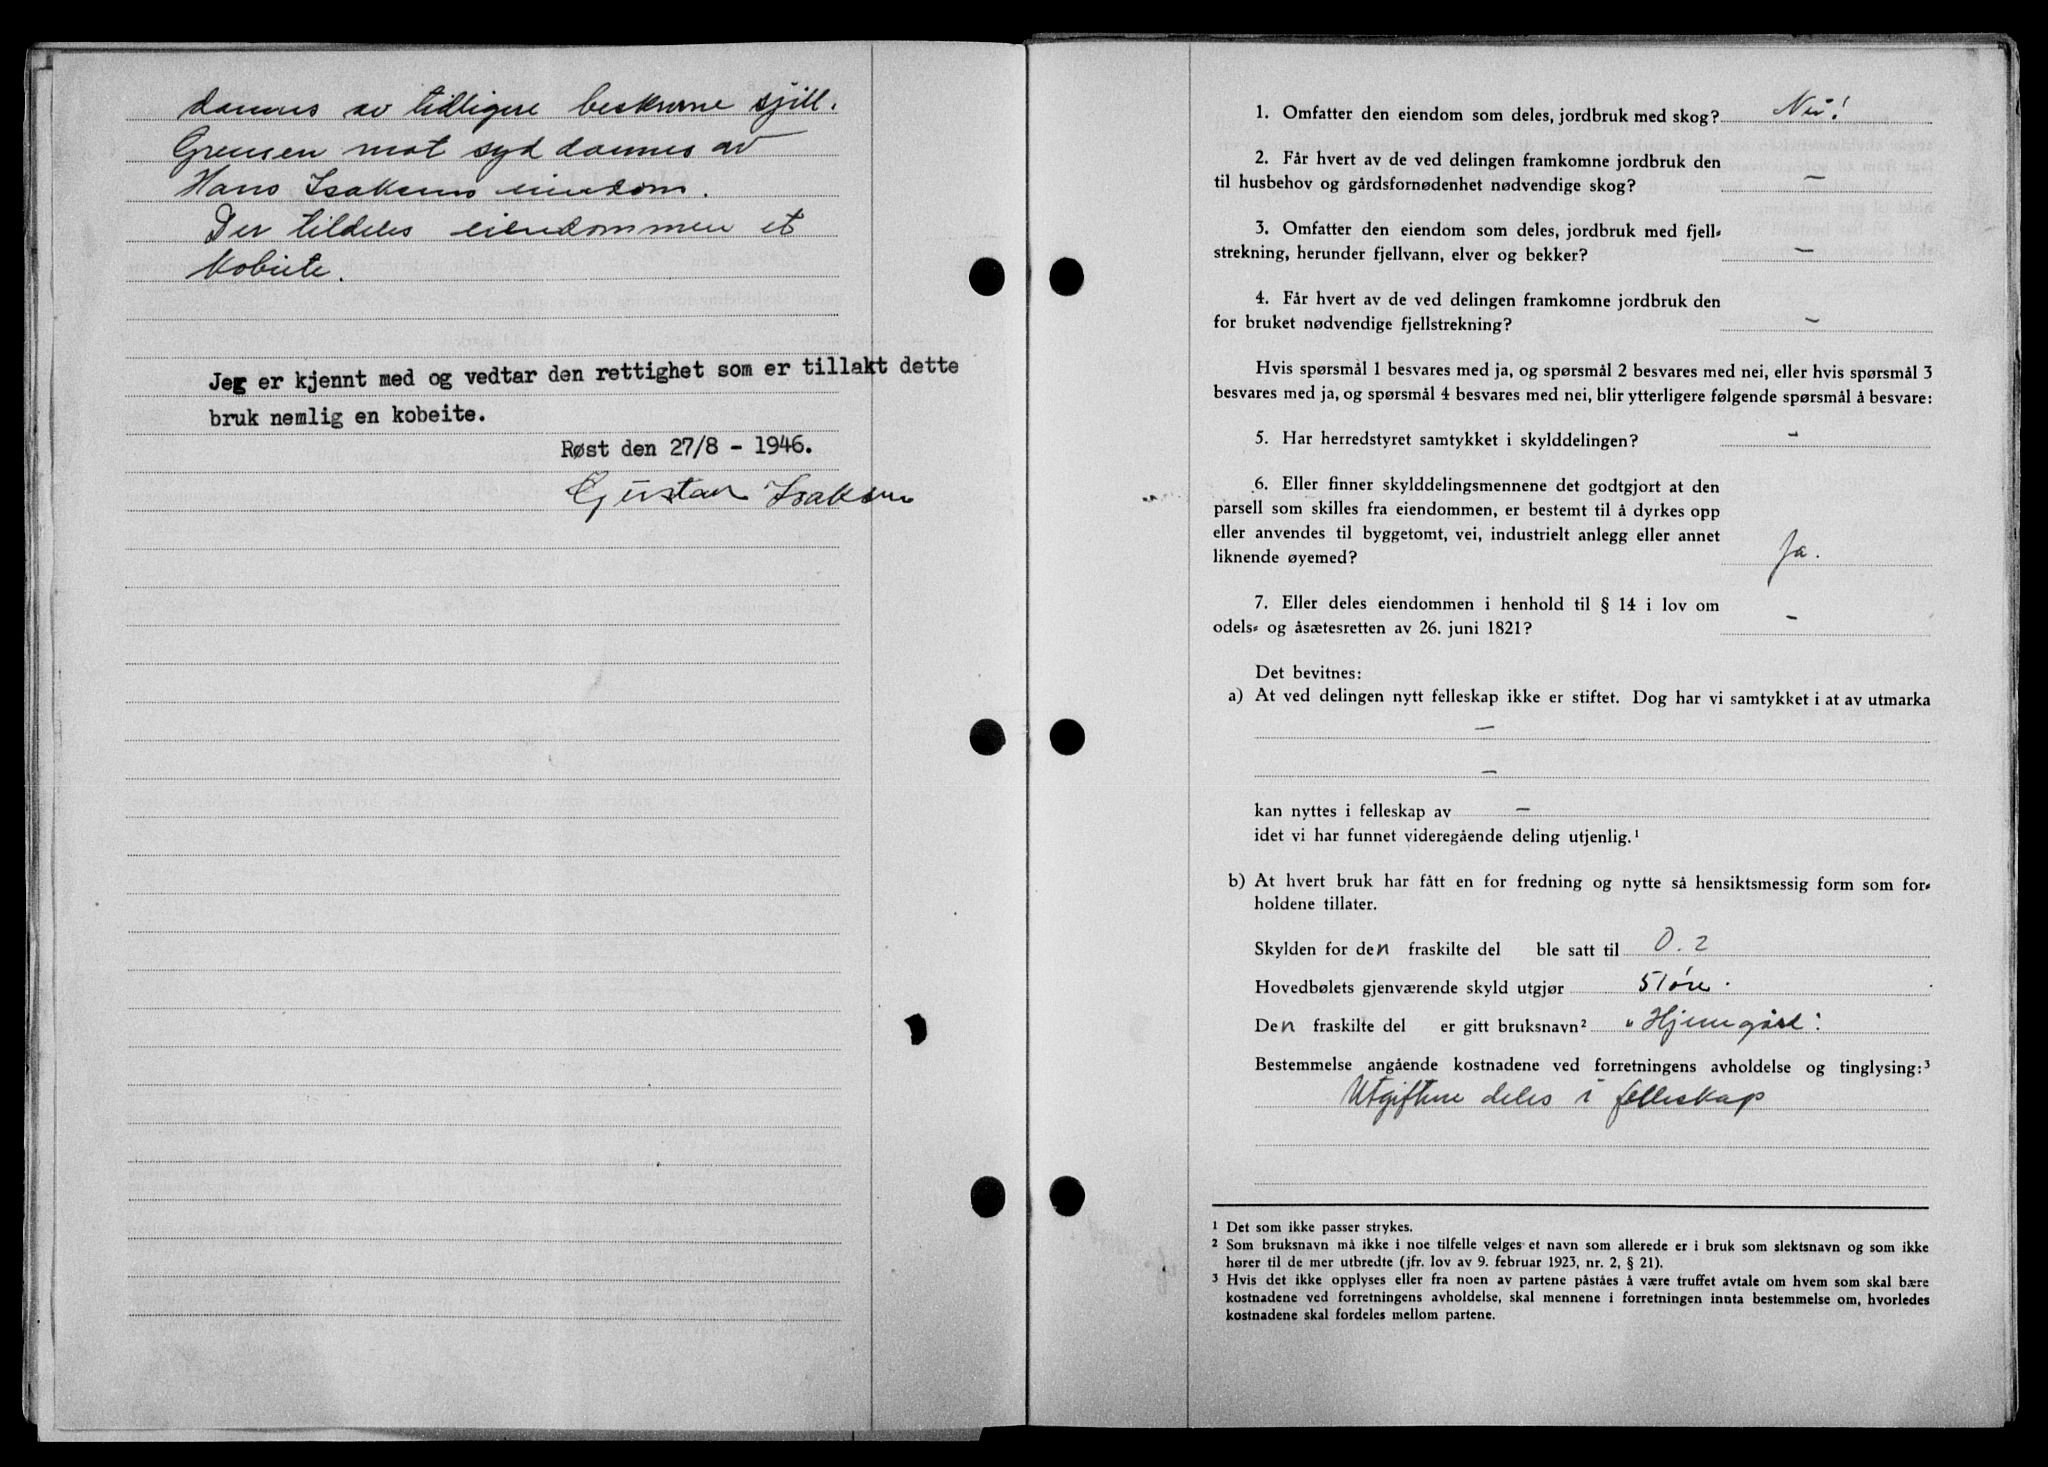 dannes av tidligere beskrevne skjill.
Grensen mot syd dannes av
Hans Isaksens eiendom.
Der tildeles eiendommen et
kobeite.
Jeg er kjennt med og vedtar den rettighet som er tillakt dette
bruk nemlig en kobeite.
Røst den 27/8 - 1946.
Gustav Isaksen
1. Omfatter den eiendom som deles, jordbruk med skog? Nei!
2. Får hvert av de ved delingen framkomne jordbruk den
til husbehov og gårdsfornødenhet nødvendige skog? –
3. Omfatter den eiendom som deles, jordbruk med fjell-
strekning, herunder fjellvann, elver og bekker? –
4. Får hvert av de ved delingen framkomne jordbruk den
for bruket nødvendige fjellstrekning? –
Hvis spørsmål 1 besvares med ja, og spørsmål 2 besvares med nei, eller hvis spørsmål 3
besvares med ja, og spørsmål 4 besvares med nei, blir ytterligere følgende spørsmål å besvare:
5. Har herredstyret samtykket i skylddelingen? –
6. Eller finner skylddelingsmennene det godtgjort at den
parsell som skilles fra eiendommen, er bestemt til å dyrkes opp
eller anvendes til byggetomt, vei, industrielt anlegg eller annet
liknende øyemed? Ja.
7. Eller deles eiendommen i henhold til § 14 i lov om
odels- og åsætesretten av 26. juni 1821? –
Det bevitnes:
a) At ved delingen nytt felleskap ikke er stiftet. Dog har vi samtykket i at av utmarka
–
–
kan nyttes i felleskap av –
idet vi har funnet videregående deling utjenlig.¹
b) At hvert bruk har fått en for fredning og nytte så hensiktsmessig form som for-
holdene tillater.
Skylden for den fraskilte del ble satt til 0.2
Hovedbølets gjenværende skyld utgjør 51 øre.
Den fraskilte del er gitt bruksnavn² "Hjemgård".
Bestemmelse angående kostnadene ved forretningens avholdelse og tinglysing:³
Utgiftene deles i felleskap
¹ Det som ikke passer strykes.
² Som bruksnavn må ikke i noe tilfelle velges et navn som allerede er i bruk som slektsnavn og som ikke
hører til de mer utbredte (jfr. lov av 9. februar 1923, nr. 2, § 21).
³ Hvis det ikke opplyses eller fra noen av partene påståes å være truffet avtale om hvem som skal bære
kostnadene ved forretningens avholdelse, skal mennene i forretningen innta bestemmelse om, hvorledes
kostnadene skal fordeles mellom partene.